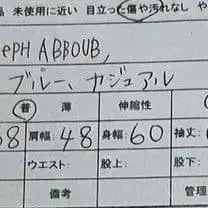 品 未使用に近い 目立った傷や汚れなし や
SEPH ABBOUB,
ブルー、カジュアル
普 薄 伸縮性
68 肩幅:48 身幅:60 袖丈:
ウエスト: 股上: 股下:
備考 管理